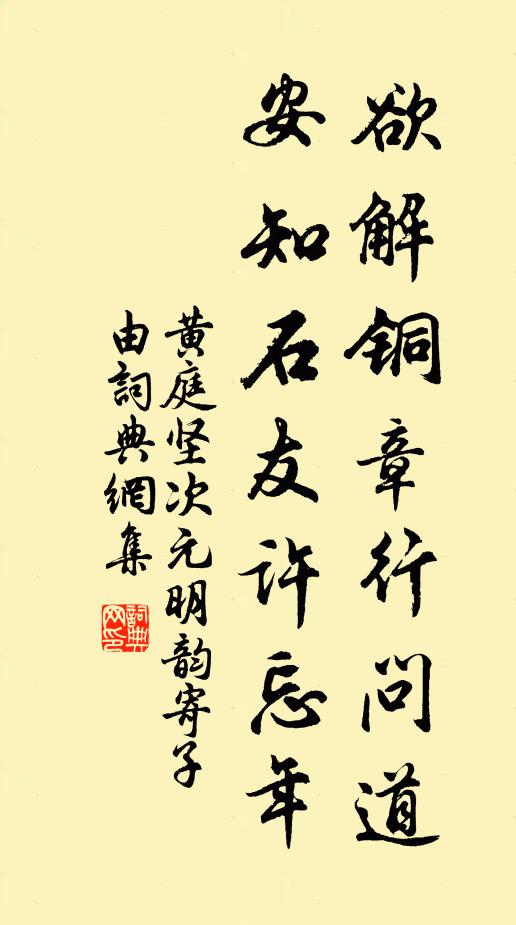 欲解铜章行问道
安知石友许忘年
黄庭坚次元明韵寄子
由詞典網集
詞典網印